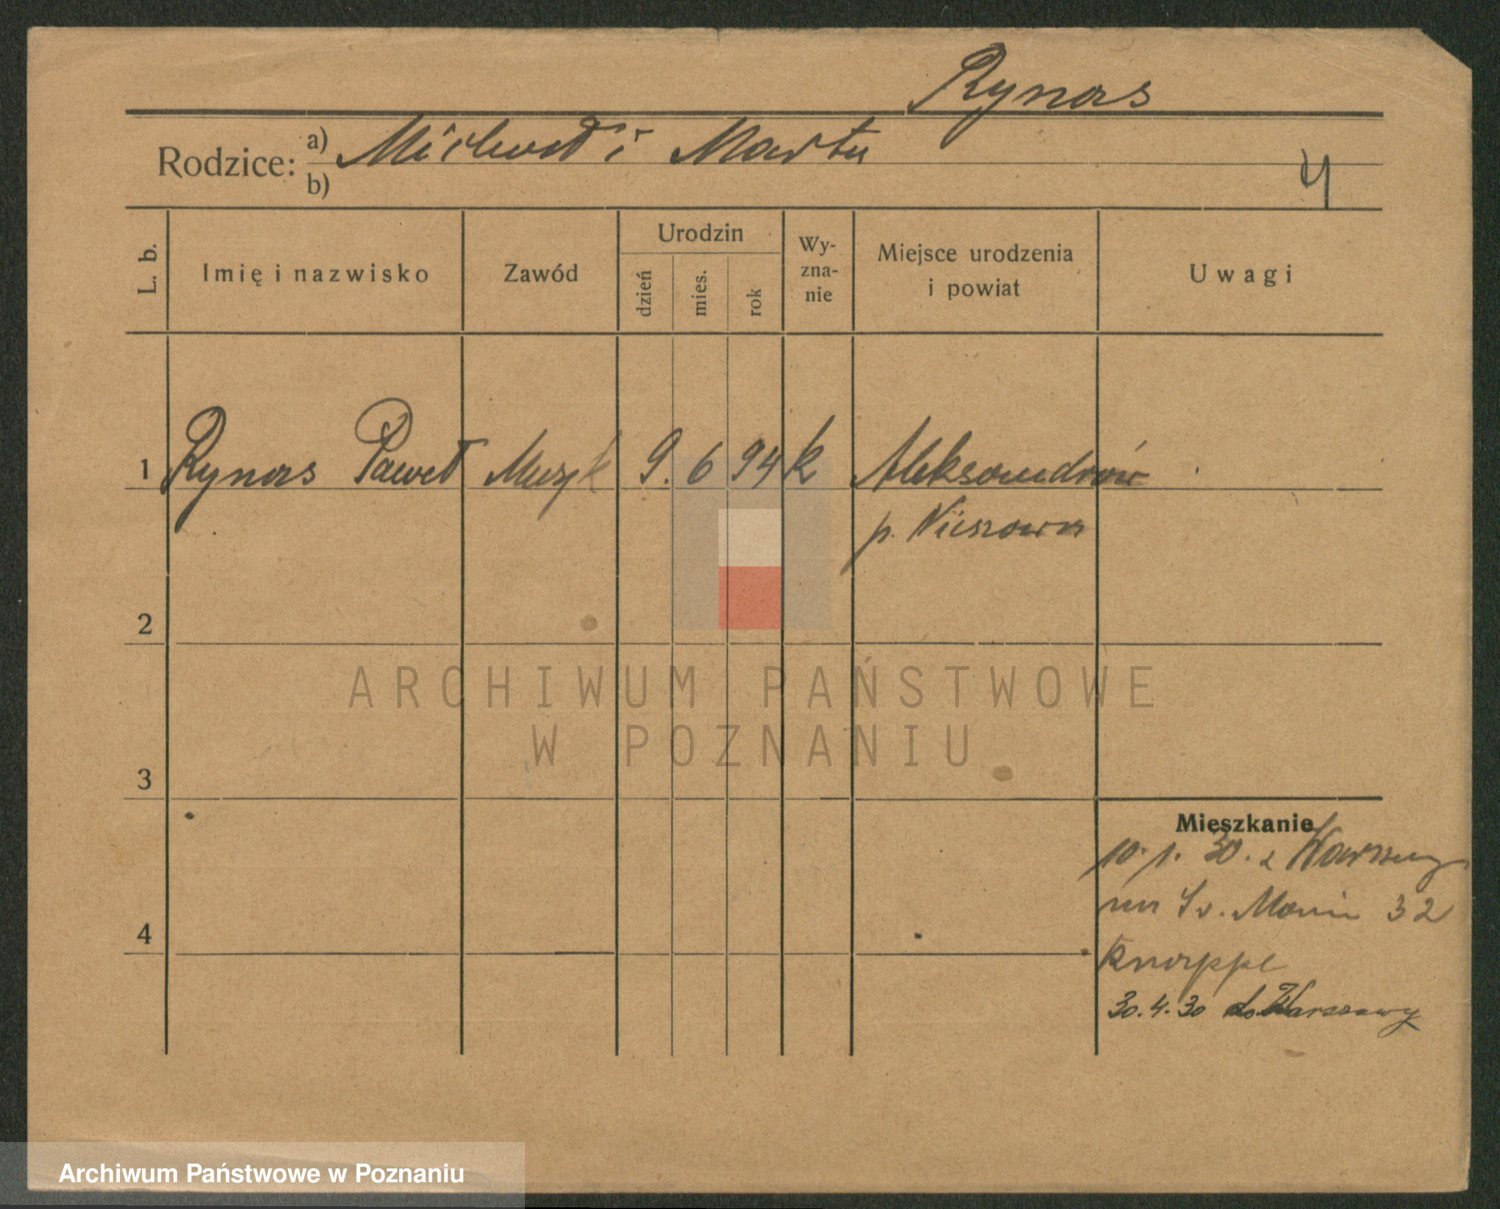 Rynas
Rodzice: a) Michał i Marta
b)
4
L. b.
Imię i nazwisko
Zawód
Urodzin
dzień
mies.
rok
Wy-
zna-
nie
Miejsce urodzenia
i powiat
Uwagi
1 Rynas Paweł Muzyk 9. 6 94 k Aleksandrów
p. Nieszawa
2
3
4
Mieszkanie
30. z Warszawy
na Św. Marcin 32
30.4.30 do Warszawy
ARCHIWUM PAŃSTWOWE
W POZNANIU
Archiwum Państwowe w Poznaniu